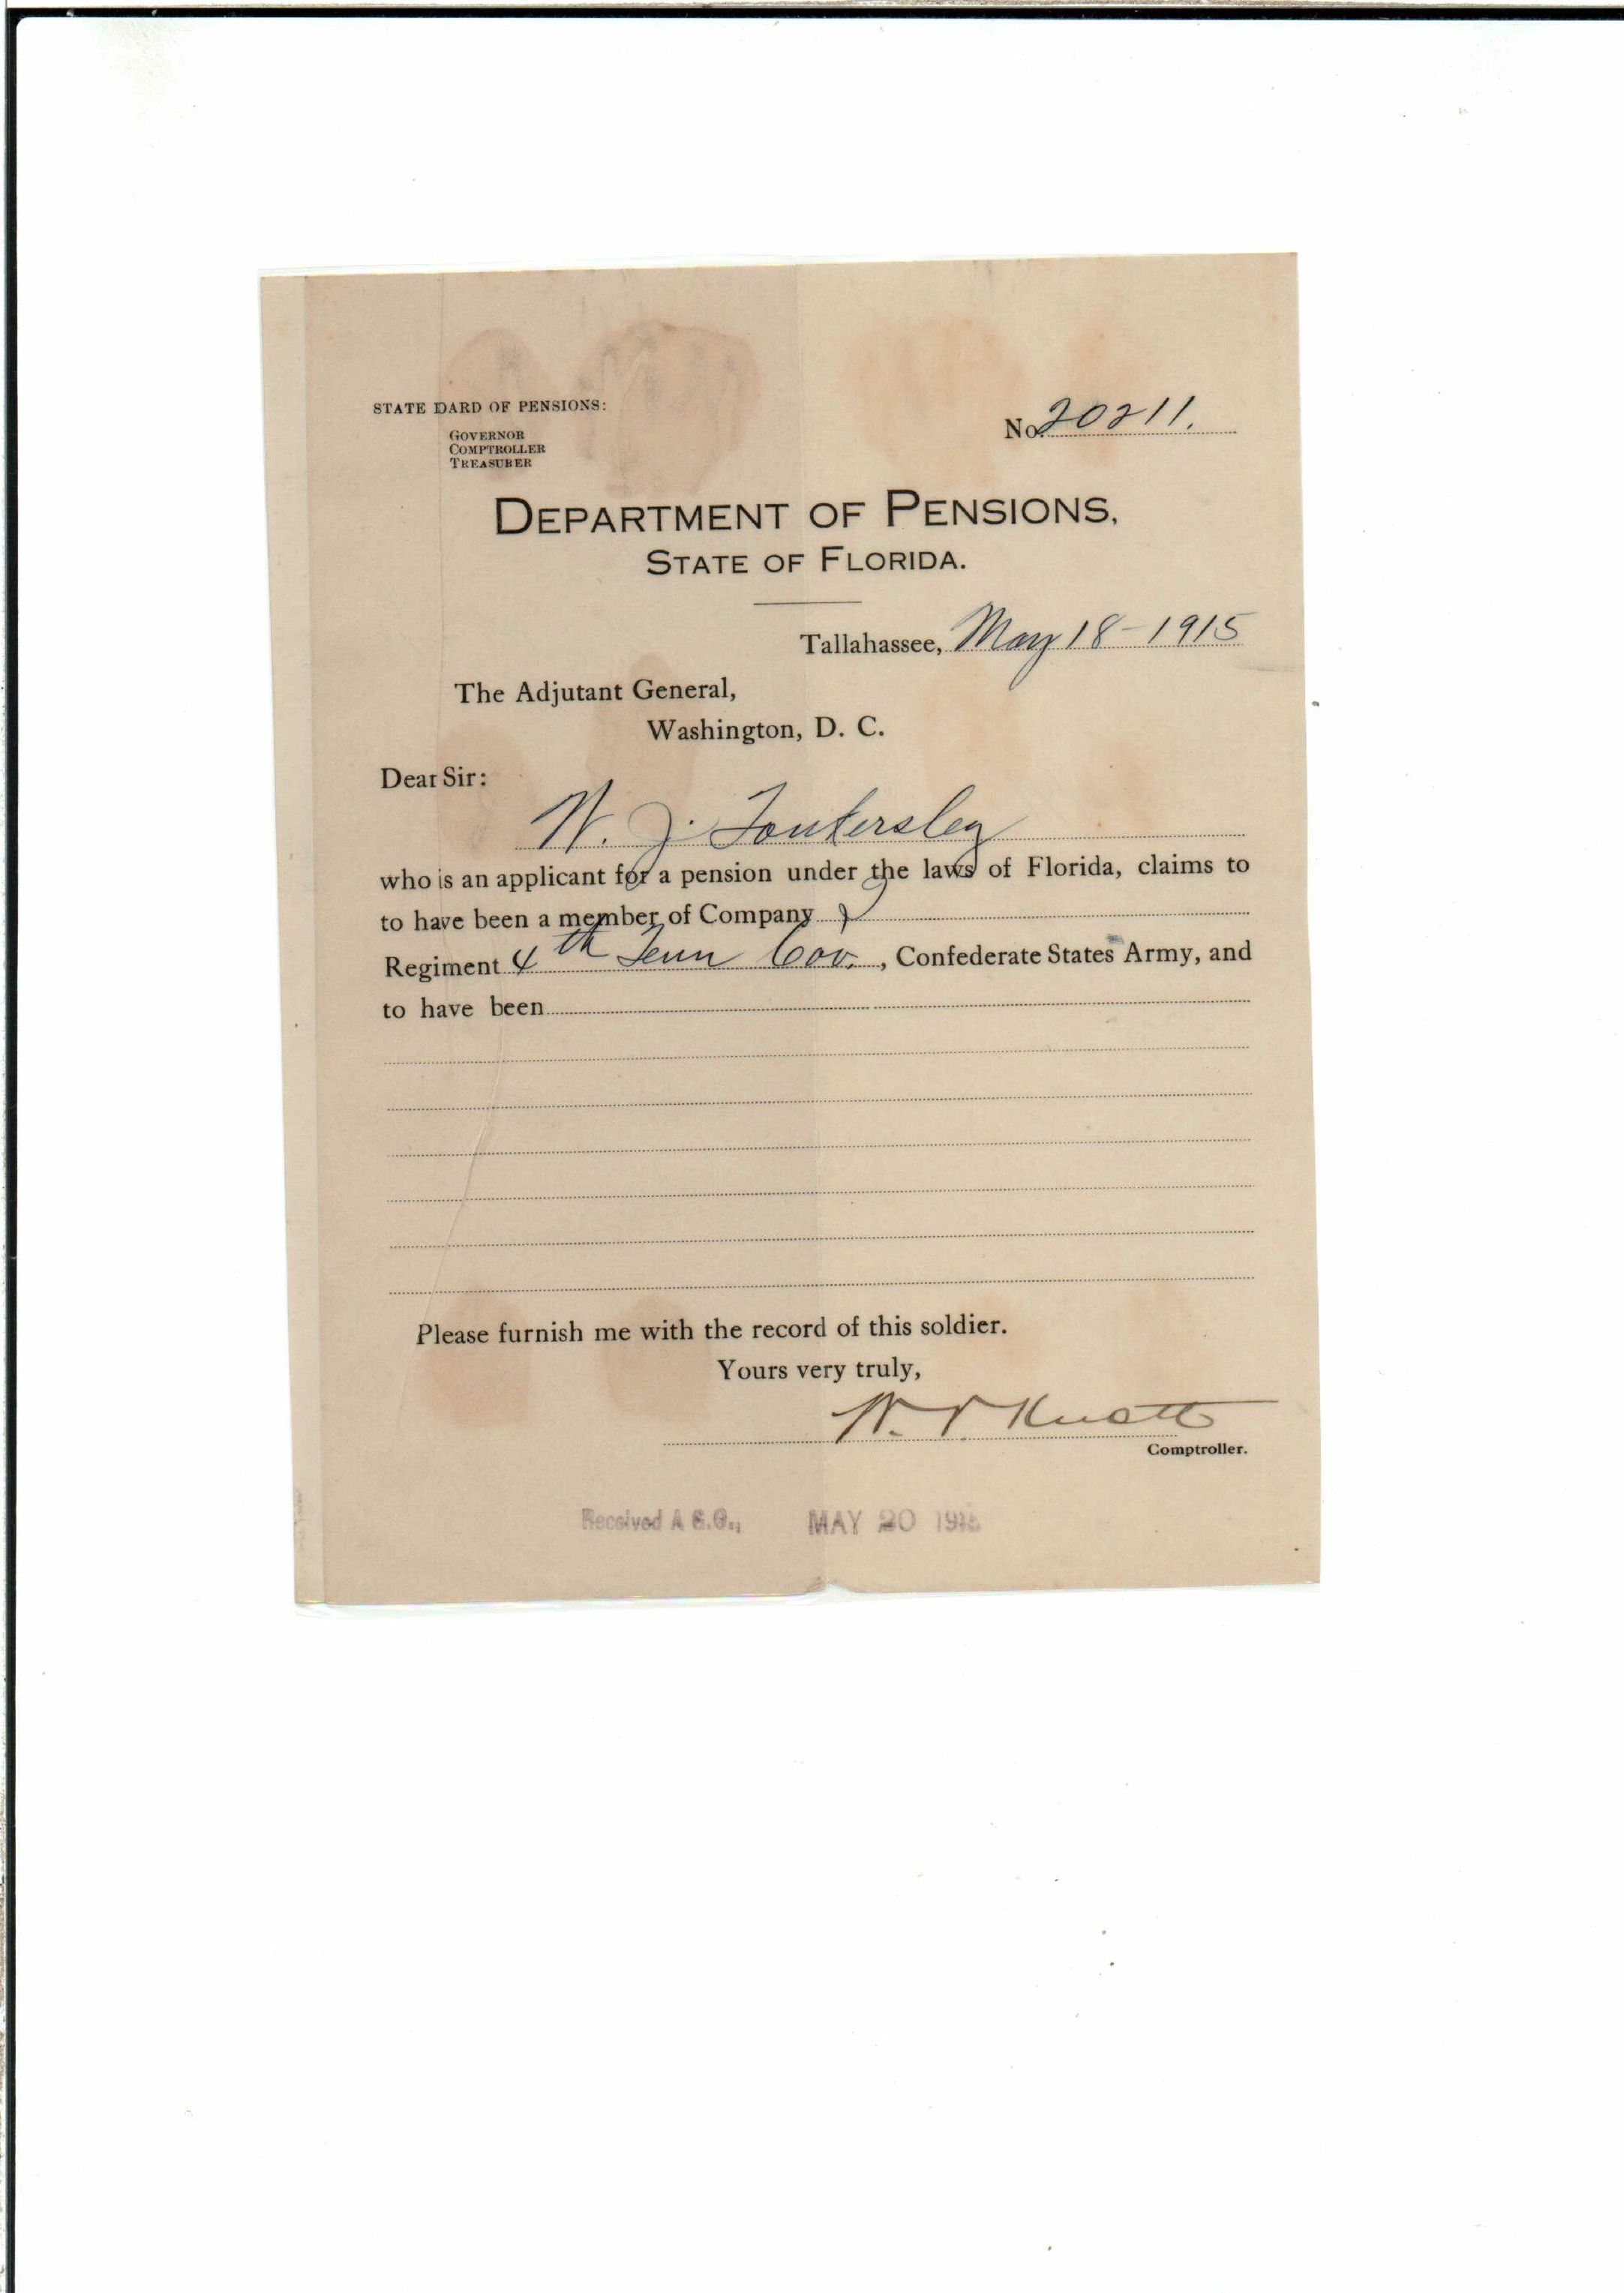 STATE BOARD OF PENSIONS:
GOVERNOR
COMPTROLLER
TREASURER
No. 20211.
DEPARTMENT OF PENSIONS,
STATE OF FLORIDA.
Tallahassee, May 18-1915
The Adjutant General,
Washington, D. C.
Dear Sir:
W. J. Tankersley
who is an applicant for a pension under the laws of Florida, claims to
to have been a member of Company
Regiment 4th Tenn Cav., Confederate States Army, and
to have been
Please furnish me with the record of this soldier.
Yours very truly,
W. V. Knott
Comptroller.
Received A.G.O., MAY 20 1915